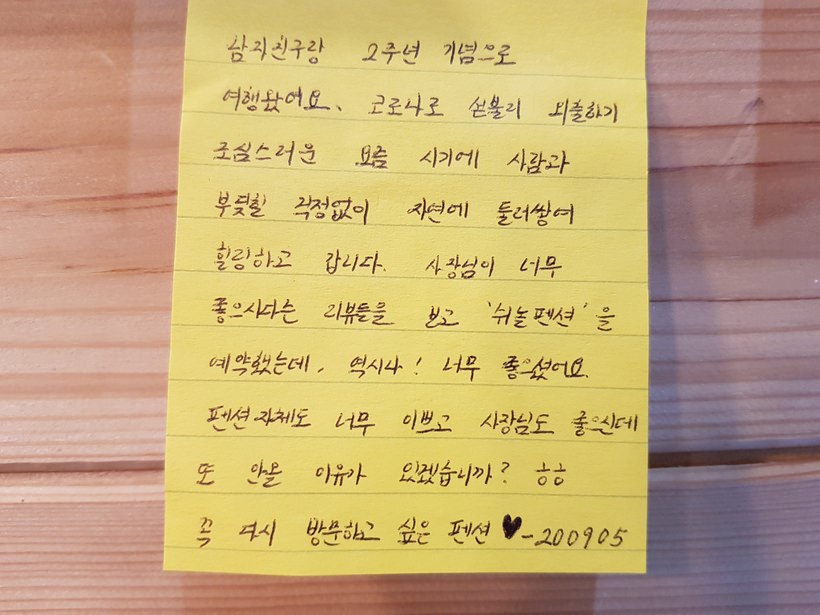 남자친구랑 2주년 기념으로
여행왔어요. 코로나로 섣불리 외출하기
조심스러운 요즘 시기에 사람과
부딪힐 걱정없이 자연에 둘러쌓여
힐링하고 갑니다. 사장님이 너무
좋으시다는 리뷰들을 보고 '쉬놀펜션'을
예약했는데, 역시나! 너무 좋으셨어요.
펜션자체도 너무 이쁘고 사장님도 좋으신데
또 안올 이유가 있겠습니까? ㅎㅎ
꼭 다시 방문하고 싶은 펜션 ♥-200905